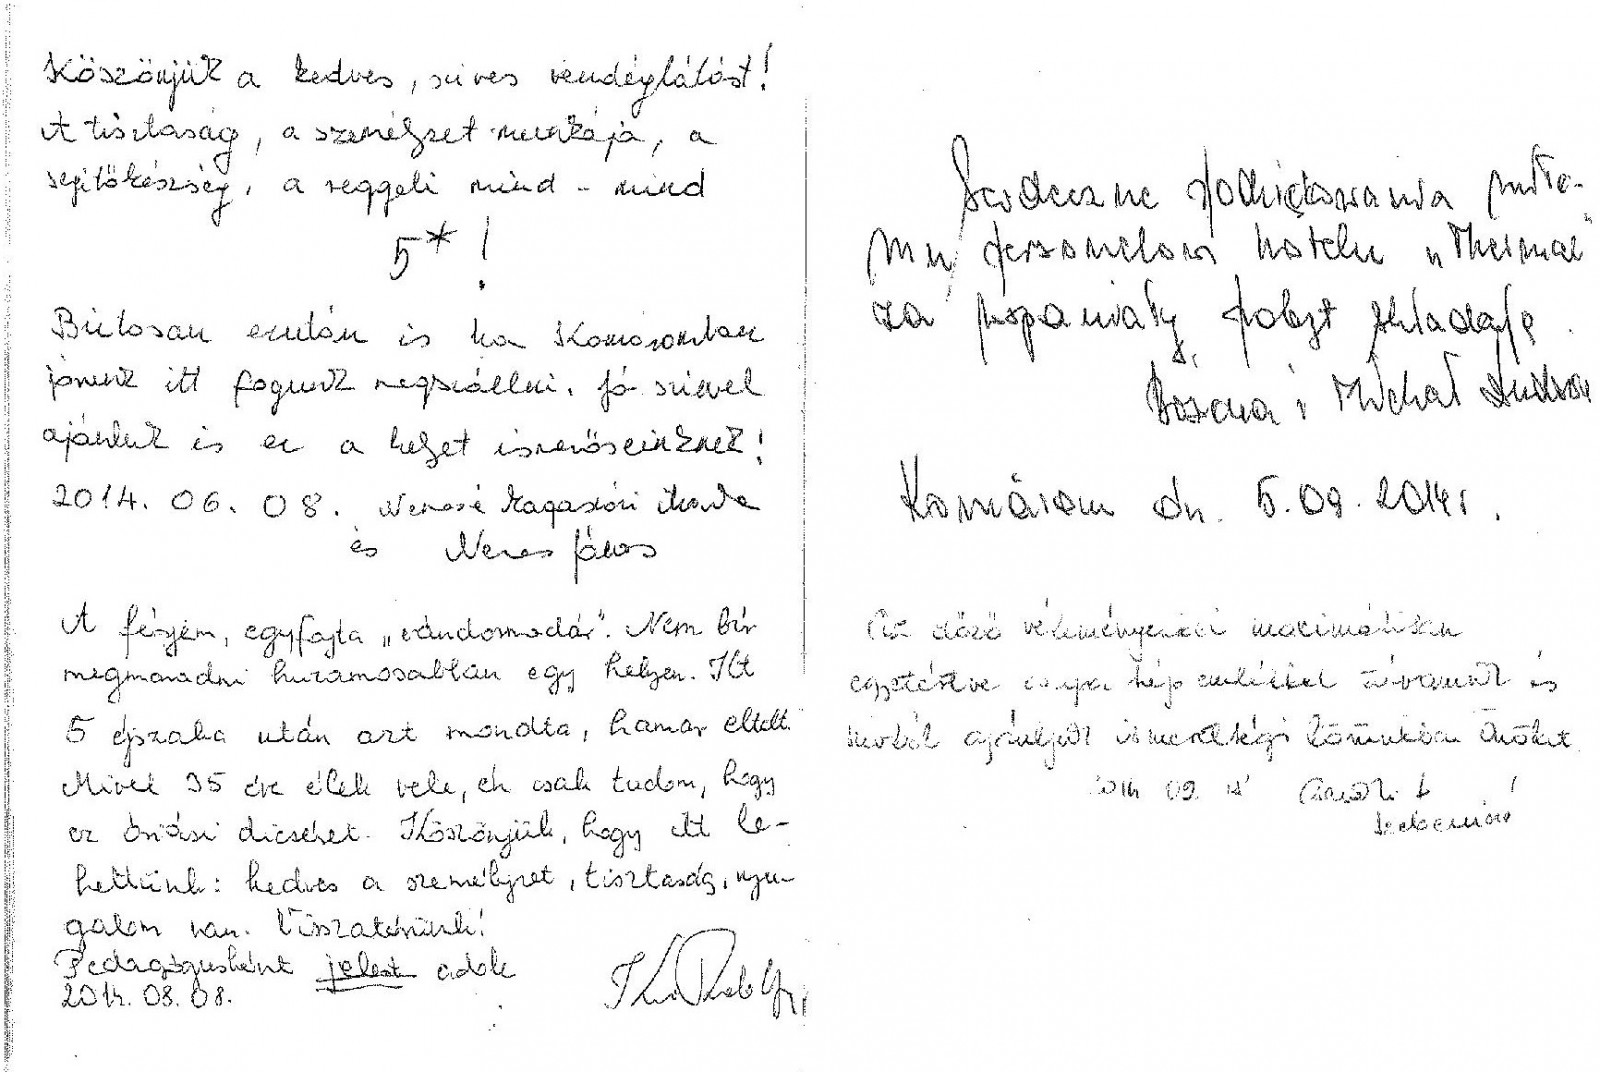 Köszönjük a kedves, szives vendéglátást!
A tisztaság, a személyzet munkája, a
segitőkészség, a reggeli mind - mind
5* !
Biztosan ezután is ha Komáromban
járunk itt fogunk megszállni. Jó szivel
ajánljuk is ez a helyet ismerőseinknek!
2014. 06. 08. Ilona
és János
A férjem, egyfajta „vándormadár". Nem bír
megmaradni huzamosabban egy helyen. Itt
5 éjszaka után azt mondta, hamar eltelt.
Mivel 35 éve élek vele, én csak tudom, hogy
ez óriási dicséret. Köszönjük, hogy itt le-
hettünk: kedves a személyzet, tisztaság, nyu-
galom van. Visszatérünk!
Pedagógusként jelest adok
2014. 08. 08.
Serdeczne podziękowania miłe-
mu personelowi hotelu „Thermal"
za wspaniały pobyt składają
Bożena i Michał
Komárom dn. 5.09.2014r.
Az előző véleményekkel maximálisan
egyetértve csupa szép emlékkel távozunk és
szívből ajánljuk ismeretségi körünkben Önöket.
2014 09